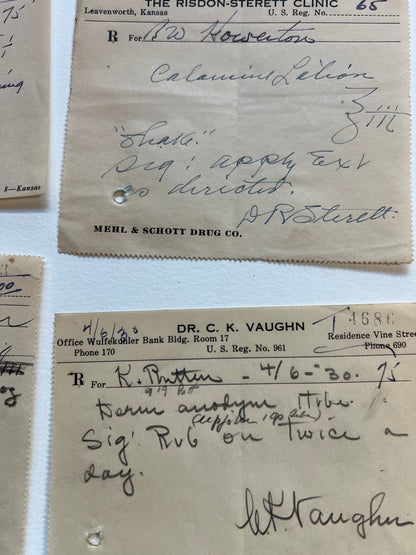 75
ing
8—Kansas
THE RISDON-STERETT CLINIC
Leavenworth, Kansas U. S. Reg. No. 65
R For BW Kowerton
Calamine Lotion
℥ iii
"Shake."
Sig: apply Ext
as directed.
D R Sterett.
MEHL & SCHOTT DRUG CO.
4/6/30 DR. C. K. VAUGHN T 4686
Office Wulfekuhler Bank Bldg. Room 17 Residence Vine Stree
Phone 170 U. S. Reg. No. 961 Phone 690
R For K. - 4/6-30. 75
Derm anodyn Tube
Sig: Rub on Twice a
day.
CKVaughn